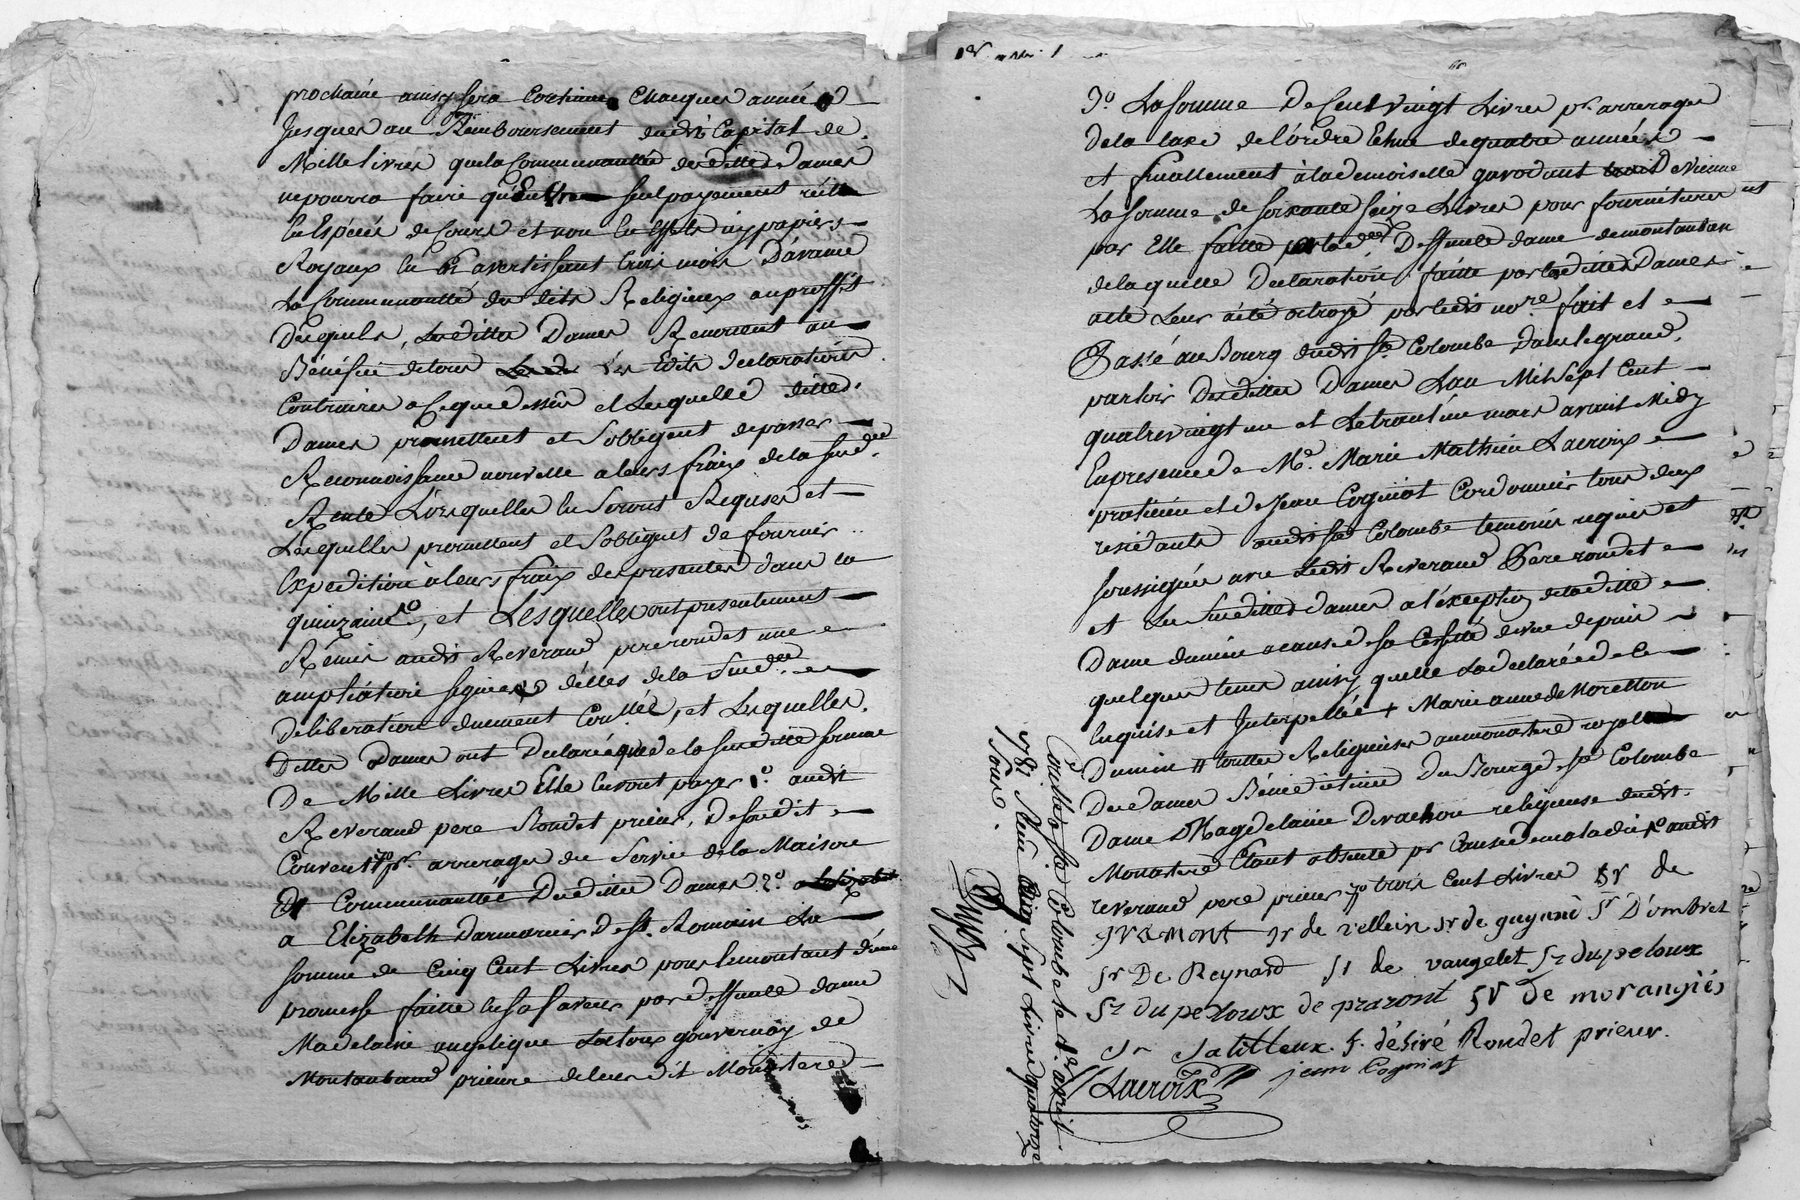 prochaine ainsy sera Continué Chacques année
Jusques au Remboursement dudit Capital de
Mille livres que la Communautté desdittes Dames
ne pourra faire qu'en un seul payement réél
En Espéces de Cours et non En Effets ny papiers
Royaux En avertissant trois mois D'avance
La Communautté des dits Religieux au proffit
Desquels, Lesdittes Dames Renoncent au
Bénéfice de tous Les Edits Declarations
Contraires a Ceque dessus et Lesquelles dittes
Dames promettent et S'obligent de passer
Reconnoissance nouvelle a leurs fraix de la susd.
Rente Lorsquelles En Seront Requises et
Lesquelles promettent et S'obligent de fournir
Expedition a leurs fraix des presentes dans la
quinzaine, et Lesquelles ont presentement
Remis audit Reverand pere rondet une
ampliation signée d'elles de la Susd.
deliberation duement Conttée, et Lesquelles
Dittes Dames ont Declaré que de la susditte somme
De Mille Livres Elle En vont payer 1.° audit
Reverand pere Rondet prieur, Desondit
Couvent pr. arrerages du Service de la Maison
Et Communauttée Desdittes Dames 2.°
a Elizabeth Darmanier De St. Romain La
somme de Cinq Cent Livres pour le montant d'une
promesse faitte En sa faveur par deffunte dame
Madelaine angelique Latour gouvernay de
Montauband prieure de leur dit Monastere
3.° La somme De Cent vingt Livres pr. arrerages
De la taxe de l'ordre Echue de quatre années
et finallement à la demoiselle gavodant de vienne
La somme de soixante seize Livres pour fournitures
par Elle faitte a lad. Deffunte dame de montauban
de la quelle Declaration faitte par lesdittes Dames
acte Leur a été octroyé par ledit no.re fait et
Passé au Bourg dudit ste Colombe Dans le grand
parloir Desdittes Dames L'an Mil Sept Cent
quatre vingt un et Le trantiéme mars avant Midy
En presence de Me. Marie Mathieu Lacroix
praticien et de Jean Cogniot Cordonnier tous deux
residants audit ste Colombe temoins requis et
soussignés avec Ledit Reverand Pere rondet
et Les Susdittes dames a l'exception de laditte
Dame dumein a cause de sa Cessitté de vue depuis
quelques tems ainsy quelle La declaré de ce
Enquise et Interpellée + Marie anne de Moretton
Dumein # touttes Religieuses au monastere royal
Des dames Bénédictines Du Bourg de ste Colombe
Dame Magdelaine Devachon religieuse dudit
Monastere Etant absente pr Cause de maladie 1.° audit
reverand pere prieur trois Cent Livres Sr de
gramont Sr de vellein Sr de guyané Sr D'ombret
Sr De Reynard Sr de vaugelet Sr dupeloux
Sr du peloux de praront Sr de morangiés
Sr Satilleux f. désiré Rondet prieur.
Lacroix Jean Cogniot
Conttolé a ste Colombe le 1.er avril
1781 Reçu sept Livres quatorze
Sous.